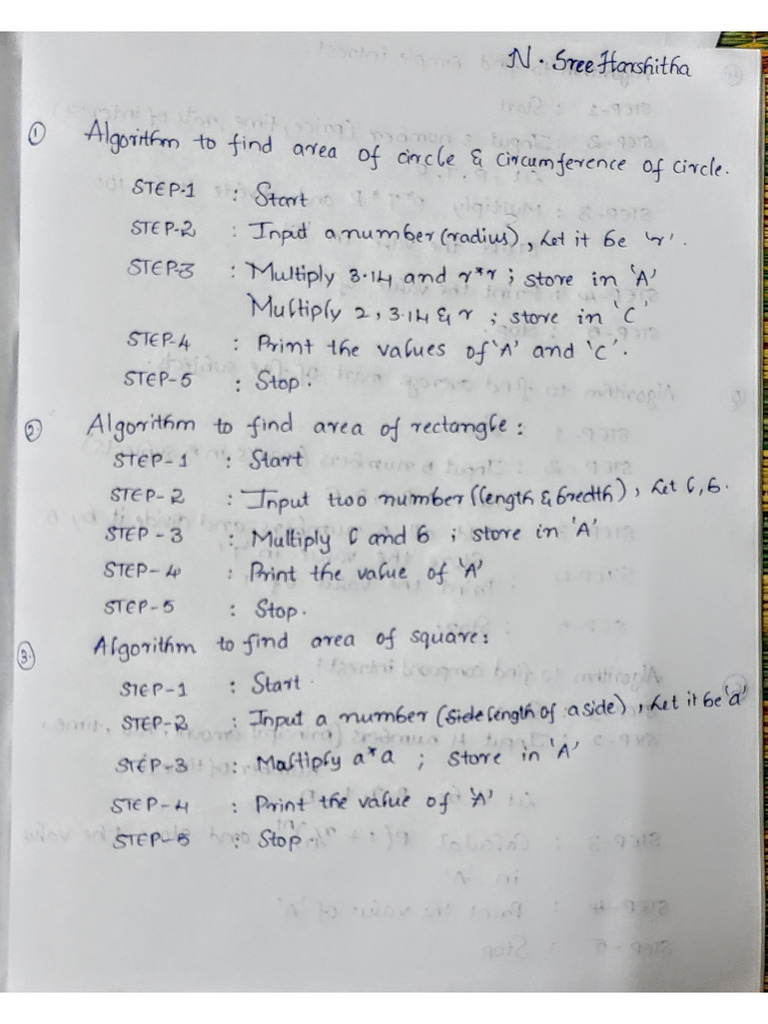 N. Sree Harshitha
① Algorithm to find area of circle & circumference of circle.
STEP-1 : Start
STEP-2 : Input a number (radius), Let it be 'r'.
STEP-3 : Multiply 3.14 and r*r ; store in 'A'
Multiply 2, 3.14 & r ; store in 'C'
STEP-4 : Print the values of 'A' and 'C'.
STEP-5 : Stop.
② Algorithm to find area of rectangle :
STEP-1 : Start
STEP-2 : Input two number (length & bredth), Let l, b.
STEP-3 : Multiply l and b ; store in 'A'
STEP-4 : Print the value of 'A'
STEP-5 : Stop.
③. Algorithm to find area of square :
STEP-1 : Start.
STEP-2 : Input a number (side length of a side), Let it be 'a'
STEP-3 : Multiply a*a ; store in 'A'
STEP-4 : Print the value of 'A'
STEP-5 : Stop.